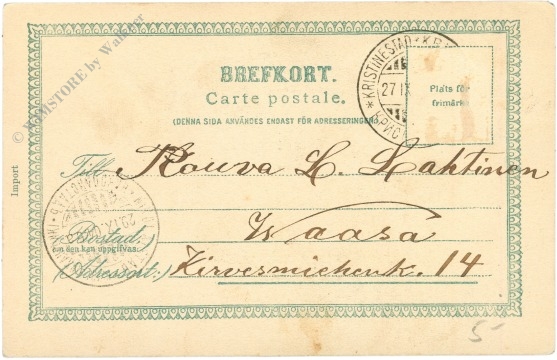 BREFKORT.
Carte postale.
(DENNA SIDA ANVÄNDES ENDAST FÖR ADRESSERINGEN.)
KRISTINESTAD
27 IX
Plats för
frimärke
© by
Import
Till Rouva L. Lahtinen
Waasa
Bostad:
om den kan uppgifvas
(Adressort:) Kirvesmiehenk. 14
5-